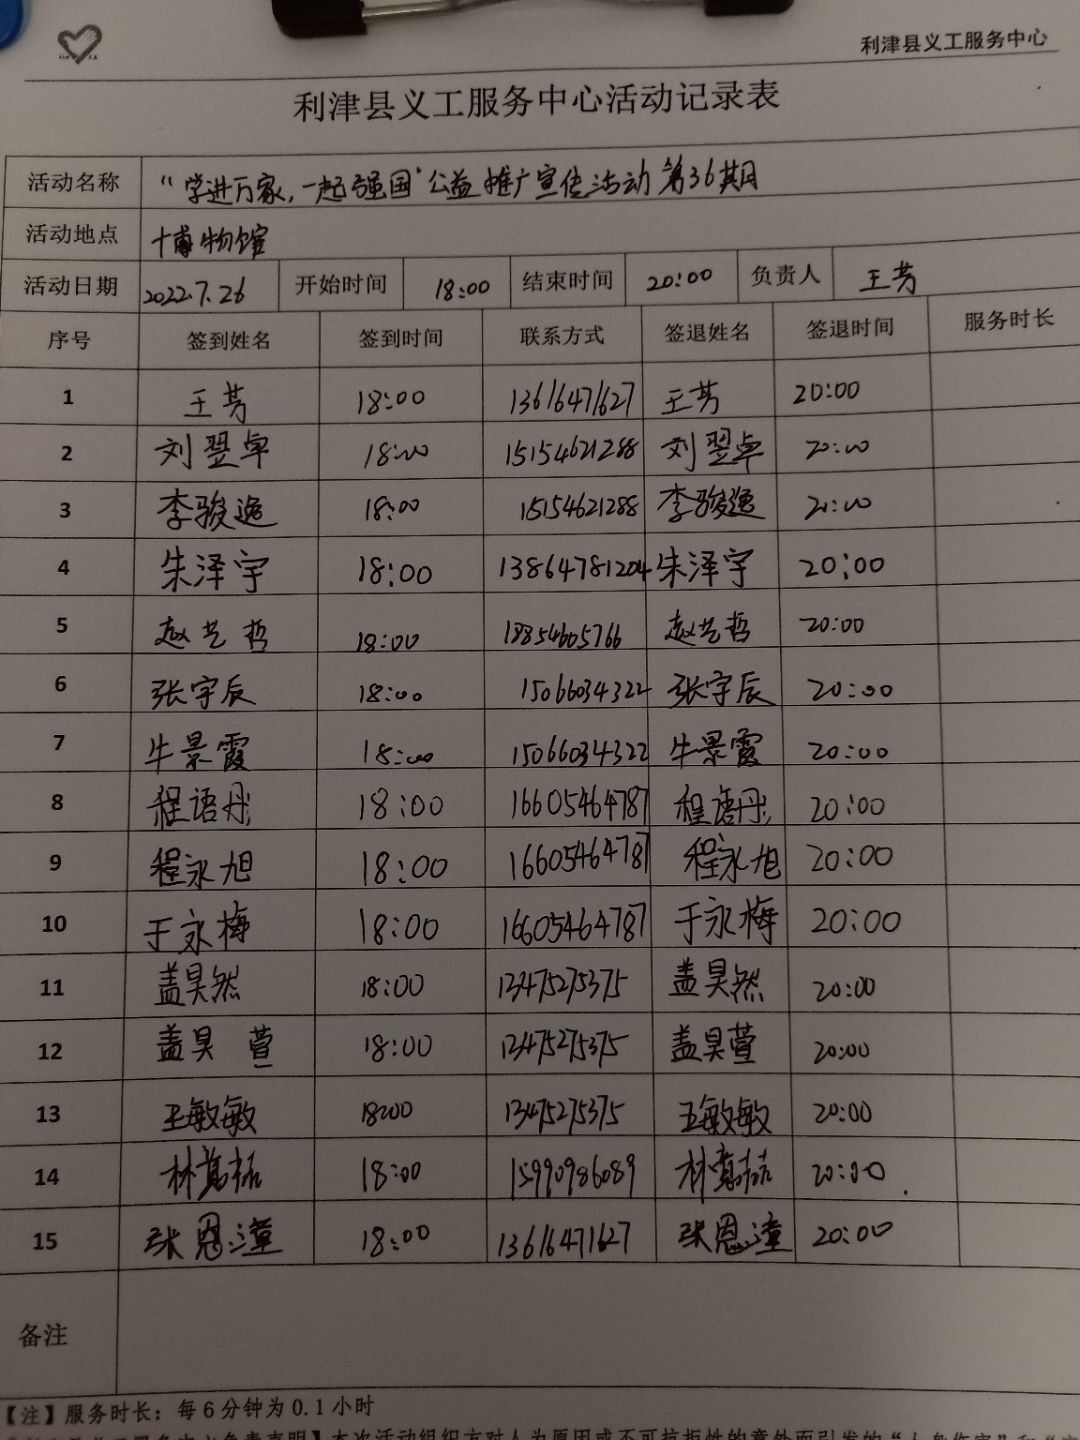 利津县义工服务中心
利津县义工服务中心活动记录表
活动名称 “学进万家,一起强国”公益推广宣传活动第36期
活动地点 博物馆
活动日期 2022.7.26 开始时间 18:00 结束时间 20:00 负责人 王芳
序号 签到姓名 签到时间 联系方式 签退姓名 签退时间 服务时长
1 王芳 18:00 13616471627 王芳 20:00
2 刘翌卓 18:00 15154621288 刘翌卓 20:00
3 李骏逸 18:00 15154621288 李骏逸 20:00
4 朱泽宇 18:00 13864781204 朱泽宇 20:00
5 赵艺哲 18:00 18854605766 赵艺哲 20:00
6 张宇辰 18:00 15066034322 张宇辰 20:00
7 牛景霞 18:00 15066034322 牛景霞 20:00
8 程语彤 18:00 16605464787 程语彤 20:00
9 程永旭 18:00 16605464787 程永旭 20:00
10 于永梅 18:00 16605464787 于永梅 20:00
11 盖昊然 18:00 13475275375 盖昊然 20:00
12 盖昊萱 18:00 13475275375 盖昊萱 20:00
13 王敏敏 18:00 13475275375 王敏敏 20:00
14 18:00 15990986089 20:00
15 张恩潼 18:00 13616471627 张恩潼 20:00
备注
【注】服务时长：每6分钟为0.1小时